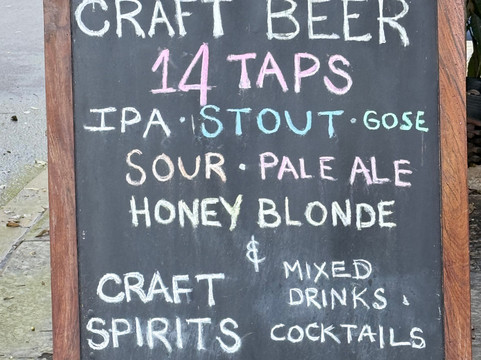 CRAFT BEER
14 TAPS
IPA · STOUT · GOSE
SOUR · PALE ALE
HONEY BLONDE
&
CRAFT SPIRITS
MIXED DRINKS &
COCKTAILS